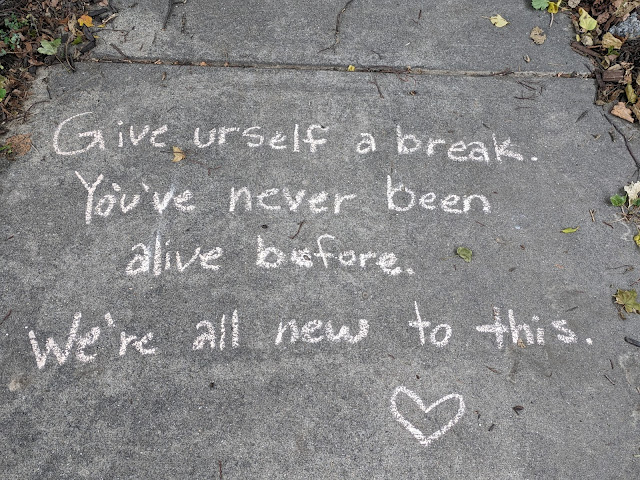 Give urself a break.
You've never been
alive before.
We're all new to this.